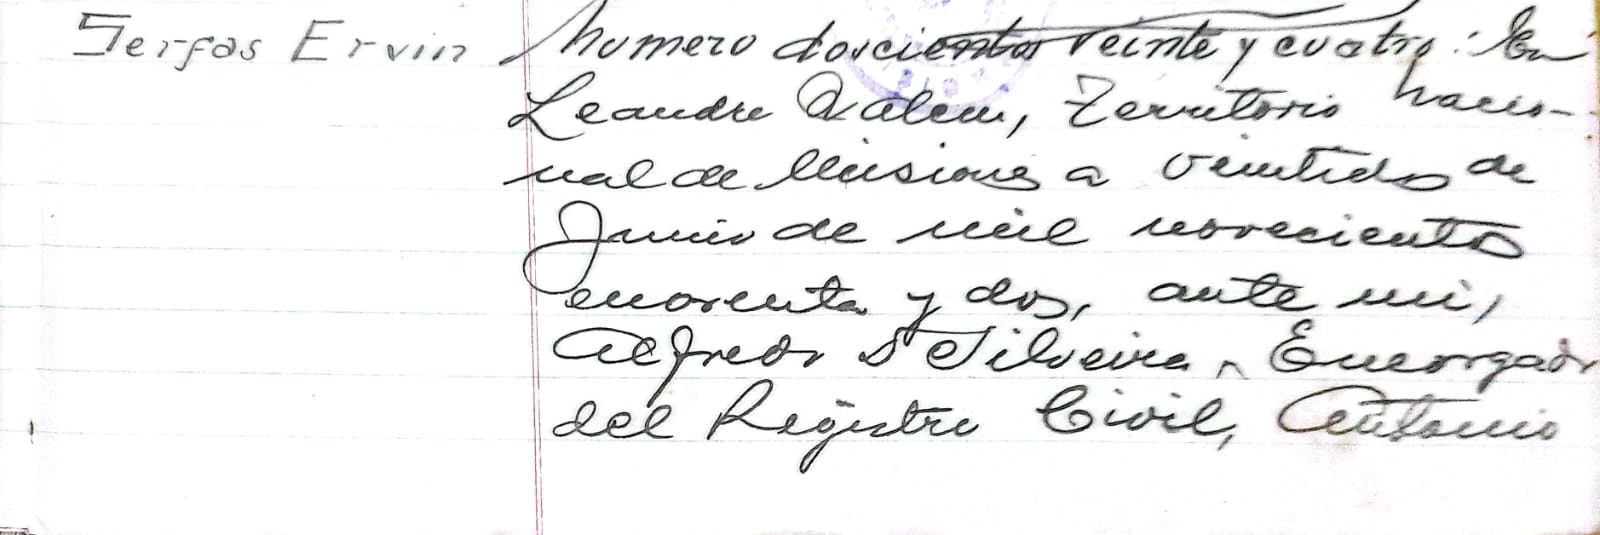 Serfas Ervin
Numero doscientos veinte y cuatro: En
Leandro N Alem, Territorio nacio-
nal de Misiones a veintidos de
Junio de mil novecientos
cuarenta y dos, ante mi,
Alfredo D Silveira, Encargado
del Registro Civil, Antonio